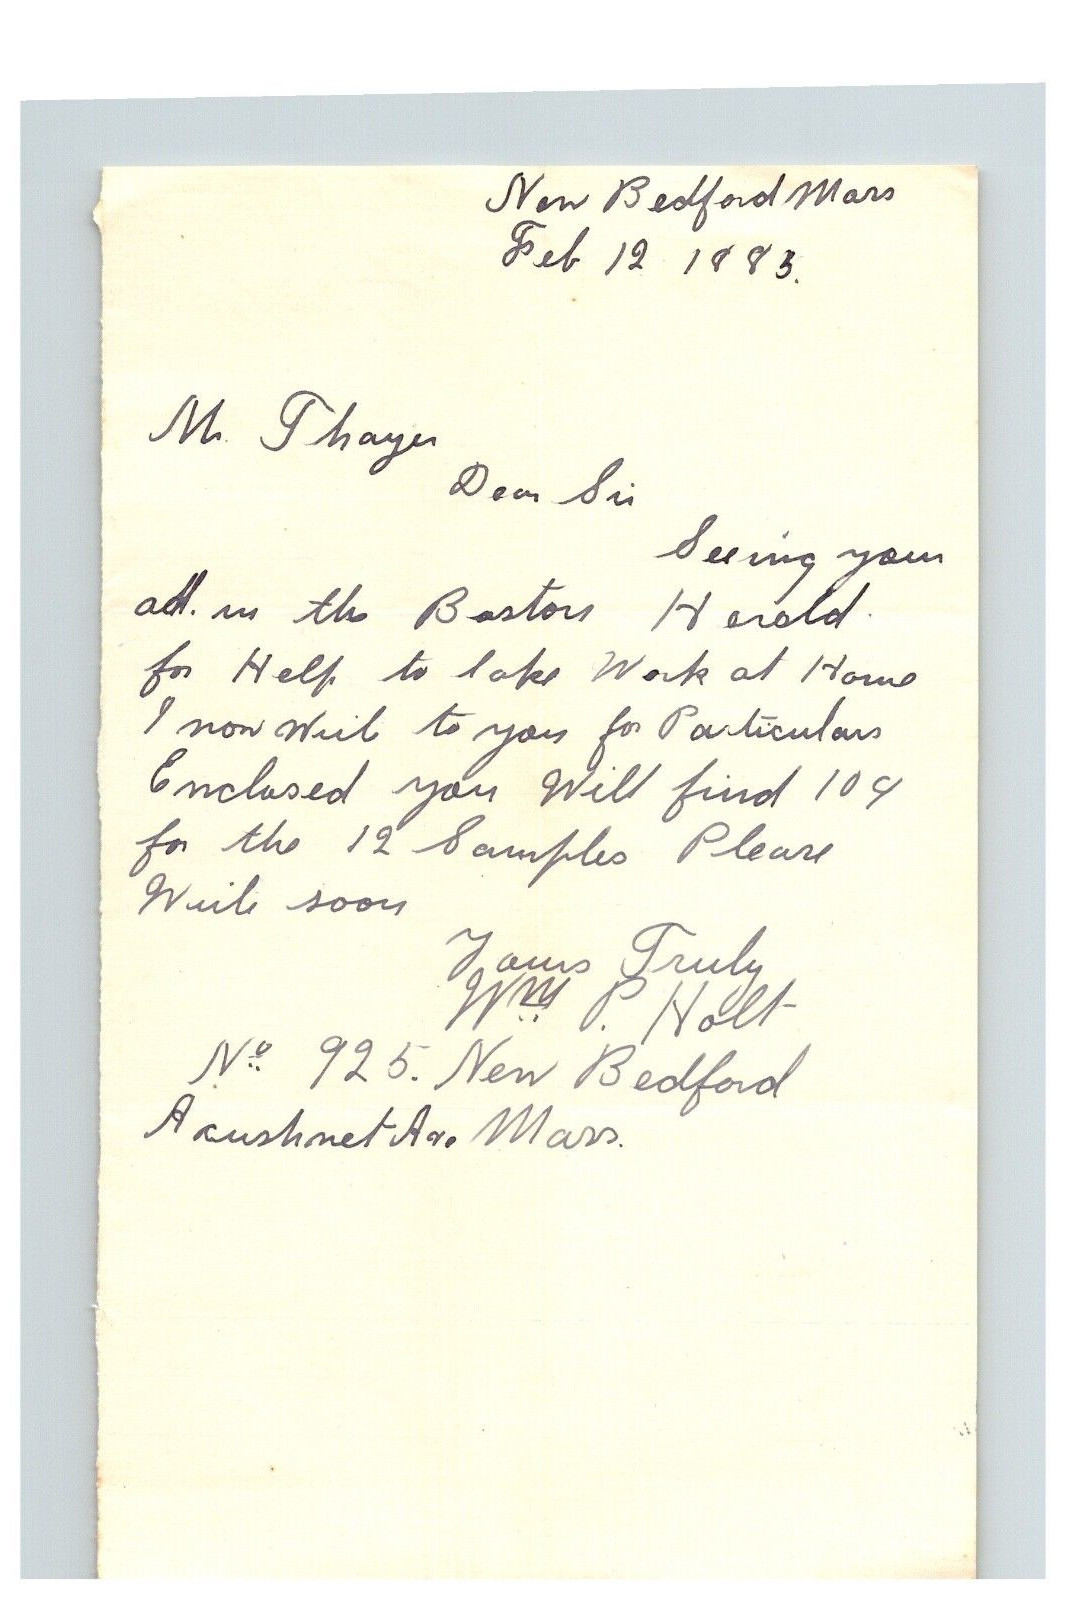 New Bedford Mass
Feb 12 1883.
Mr. Thayer
Dear Sir
Seeing your
add. in the Boston Herald.
for Help to take Work at Home
I now Write to you for Particulars
Enclosed you Will find 10¢
for the 12 Samples Please
Write soon
Yours Truly
Wm. P. Holt
No. 925. New Bedford
Acushnet Ave Mass.